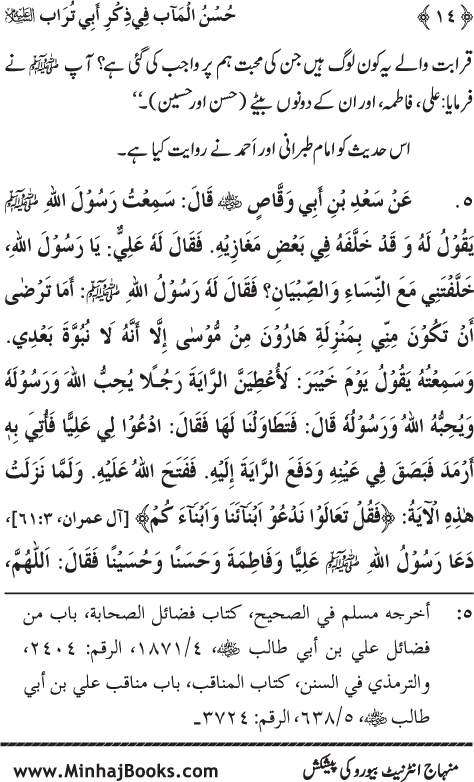 ﴿۱۴﴾ حُسْنُ الْمَآب فِي ذِكْرِ أَبِي تُرَاب
قرابت والے یہ کون لوگ ہیں جن کی محبت ہم پر واجب کی گئی ہے؟ آپ ﷺ نے
فرمایا: علی، فاطمہ، اور ان کے دونوں بیٹے (حسن اور حسین)۔‘‘
اس حدیث کو امام طبرانی اور اَحمد نے روایت کیا ہے۔
٥. عَنْ سَعْدِ بْنِ أَبِي وَقَّاصٍ رضی اللہ عنہ قَالَ: سَمِعْتُ رَسُوْلَ اللهِ ﷺ
يَقُوْلُ لَهُ وَ قَدْ خَلَّفَهُ فِي بَعْضِ مَغَازِيْهِ. فَقَالَ لَهُ عَلِيٌّ: يَا رَسُوْلَ اللهِ،
خَلَّفْتَنِي مَعَ النِّسَاءِ وَالصِّبْيَانِ؟ فَقَالَ لَهُ رَسُوْلُ اللهِ ﷺ: أَمَا تَرْضٰى
أَنْ تَكُوْنَ مِنِّي بِمَنْزِلَةِ هَارُوْنَ مِنْ مُوْسٰى إِلَّا أَنَّهُ لَا نُبُوَّةَ بَعْدِي.
وَسَمِعْتُهُ يَقُوْلُ يَوْمَ خَيْبَرَ: لَأُعْطِيَنَّ الرَّايَةَ رَجُلًا يُحِبُّ اللهَ وَرَسُوْلَهُ
وَيُحِبُّهُ اللهُ وَرَسُوْلُهُ قَالَ: فَتَطَاوَلْنَا لَهَا فَقَالَ: ادْعُوْا لِي عَلِيًّا فَأُتِيَ بِهِ
أَرْمَدَ فَبَصَقَ فِي عَيْنِهِ وَدَفَعَ الرَّايَةَ إِلَيْهِ. فَفَتَحَ اللهُ عَلَيْهِ. وَلَمَّا نَزَلَتْ
هٰذِهِ الْآيَةُ: ﴿فَقُلْ تَعَالَوْا نَدْعُ اَبْنَآئَنَا وَاَبْنَآءَ كُمْ﴾ [آل عمران، ٣:٦١]،
دَعَا رَسُوْلُ اللهِ ﷺ عَلِيًّا وَفَاطِمَةَ وَحَسَنًا وَحُسَيْنًا فَقَالَ: اَللّٰهُمَّ،
٥: أخرجه مسلم في الصحيح، كتاب فضائل الصحابة، باب من
فضائل علي بن أبي طالب رضی اللہ عنہ، ٤/١٨٧١، الرقم: ٢٤٠٤،
والترمذي في السنن، كتاب المناقب، باب مناقب علي بن أبي
طالب رضی اللہ عنہ، ٥/٦٣٨، الرقم: ٣٧٢٤۔
منہاج انٹرنیٹ بیورو کی پیشکش www.MinhajBooks.com